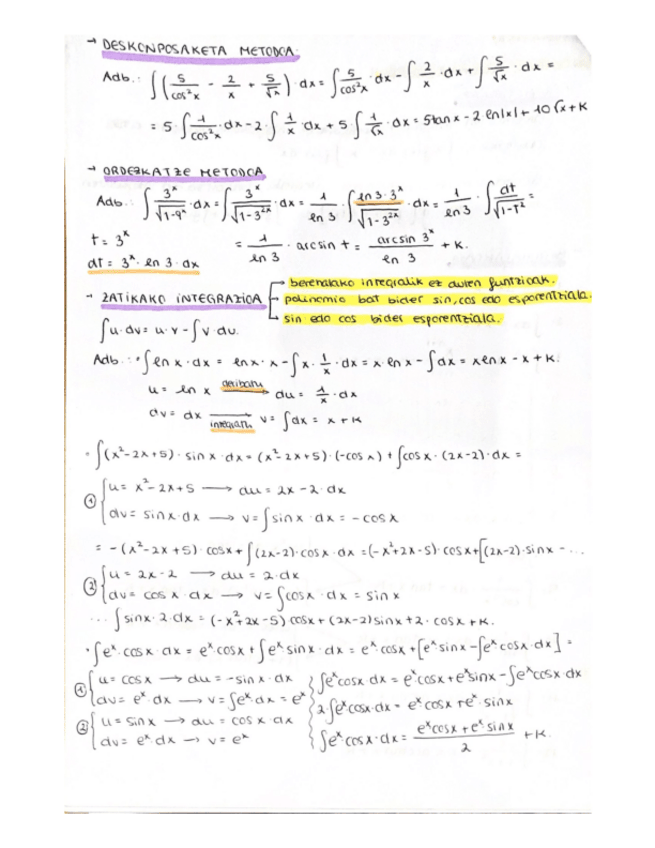 → DESKONPOSAKETA METODOA.
Adb.: ∫(5/cos²x - 2/x + 5/√x)·dx = ∫5/cos²x·dx - ∫2/x·dx + ∫5/√x·dx =
= 5·∫1/cos²x·dx - 2·∫1/x·dx + 5∫1/√x·dx = 5tanx - 2 ln|x| + 10√x + K
→ ORDEZKATZE METODOA
Adb.: ∫3ˣ/√(1-9ˣ)·dx = ∫3ˣ/√(1-3²ˣ)·dx = 1/ln 3·∫ln3·3ˣ/√(1-3²ˣ)·dx = 1/ln 3·∫dt/√(1-t²) =
t = 3ˣ = 1/ln 3 · arcsin t = arcsin 3ˣ/ln 3 + K.
dt = 3ˣ·ln 3·dx
berehalako integralik ez duten funtzioak.
→ ZATIKAKO INTEGRAZIOA polinomio bat bider sin, cos edo esponentziala.
sin edo cos bider esponentziala.
∫u·dv = u·v - ∫v·du.
Adb.: • ∫ln x·dx = lnx·x - ∫x·1/x·dx = x·lnx - ∫dx = xlnx - x + K.
u = ln x deribatu → du = 1/x·dx
dv = dx integratu → v = ∫dx = x + K
• ∫(x²-2x+5)·sin x·dx = (x²-2x+5)·(-cos x) + ∫cosx·(2x-2)·dx =
① { u = x²-2x+5 → du = 2x-2·dx
dv = sinx·dx → v = ∫sinx·dx = -cosx
= -(x²-2x+5)·cosx + ∫(2x-2)·cosx·dx = (-x²+2x-5)·cosx + [(2x-2)·sinx - ...
② { u = 2x-2 → du = 2·dx
dv = cos x·dx → v = ∫cosx·dx = sin x
... ∫sinx·2·dx = (-x²+2x-5) cosx + (2x-2)sinx + 2·cosx + K.
• ∫eˣ·cosx·dx = eˣ·cosx + ∫eˣ·sinx·dx = eˣ·cosx + [eˣsinx - ∫eˣcosx·dx] =
① { u = cosx → du = -sinx·dx } ∫eˣcosx·dx = eˣ·cosx + eˣsinx - ∫eˣcosx dx
dv = eˣ·dx → v = ∫eˣ·dx = eˣ } 2·∫eˣcosx·dx = eˣcosx + eˣ·sinx
② { u = sinx → du = cosx·dx
dv = eˣ·dx → v = eˣ } ∫eˣcosx·dx = eˣcosx + eˣsinx/2 + K.